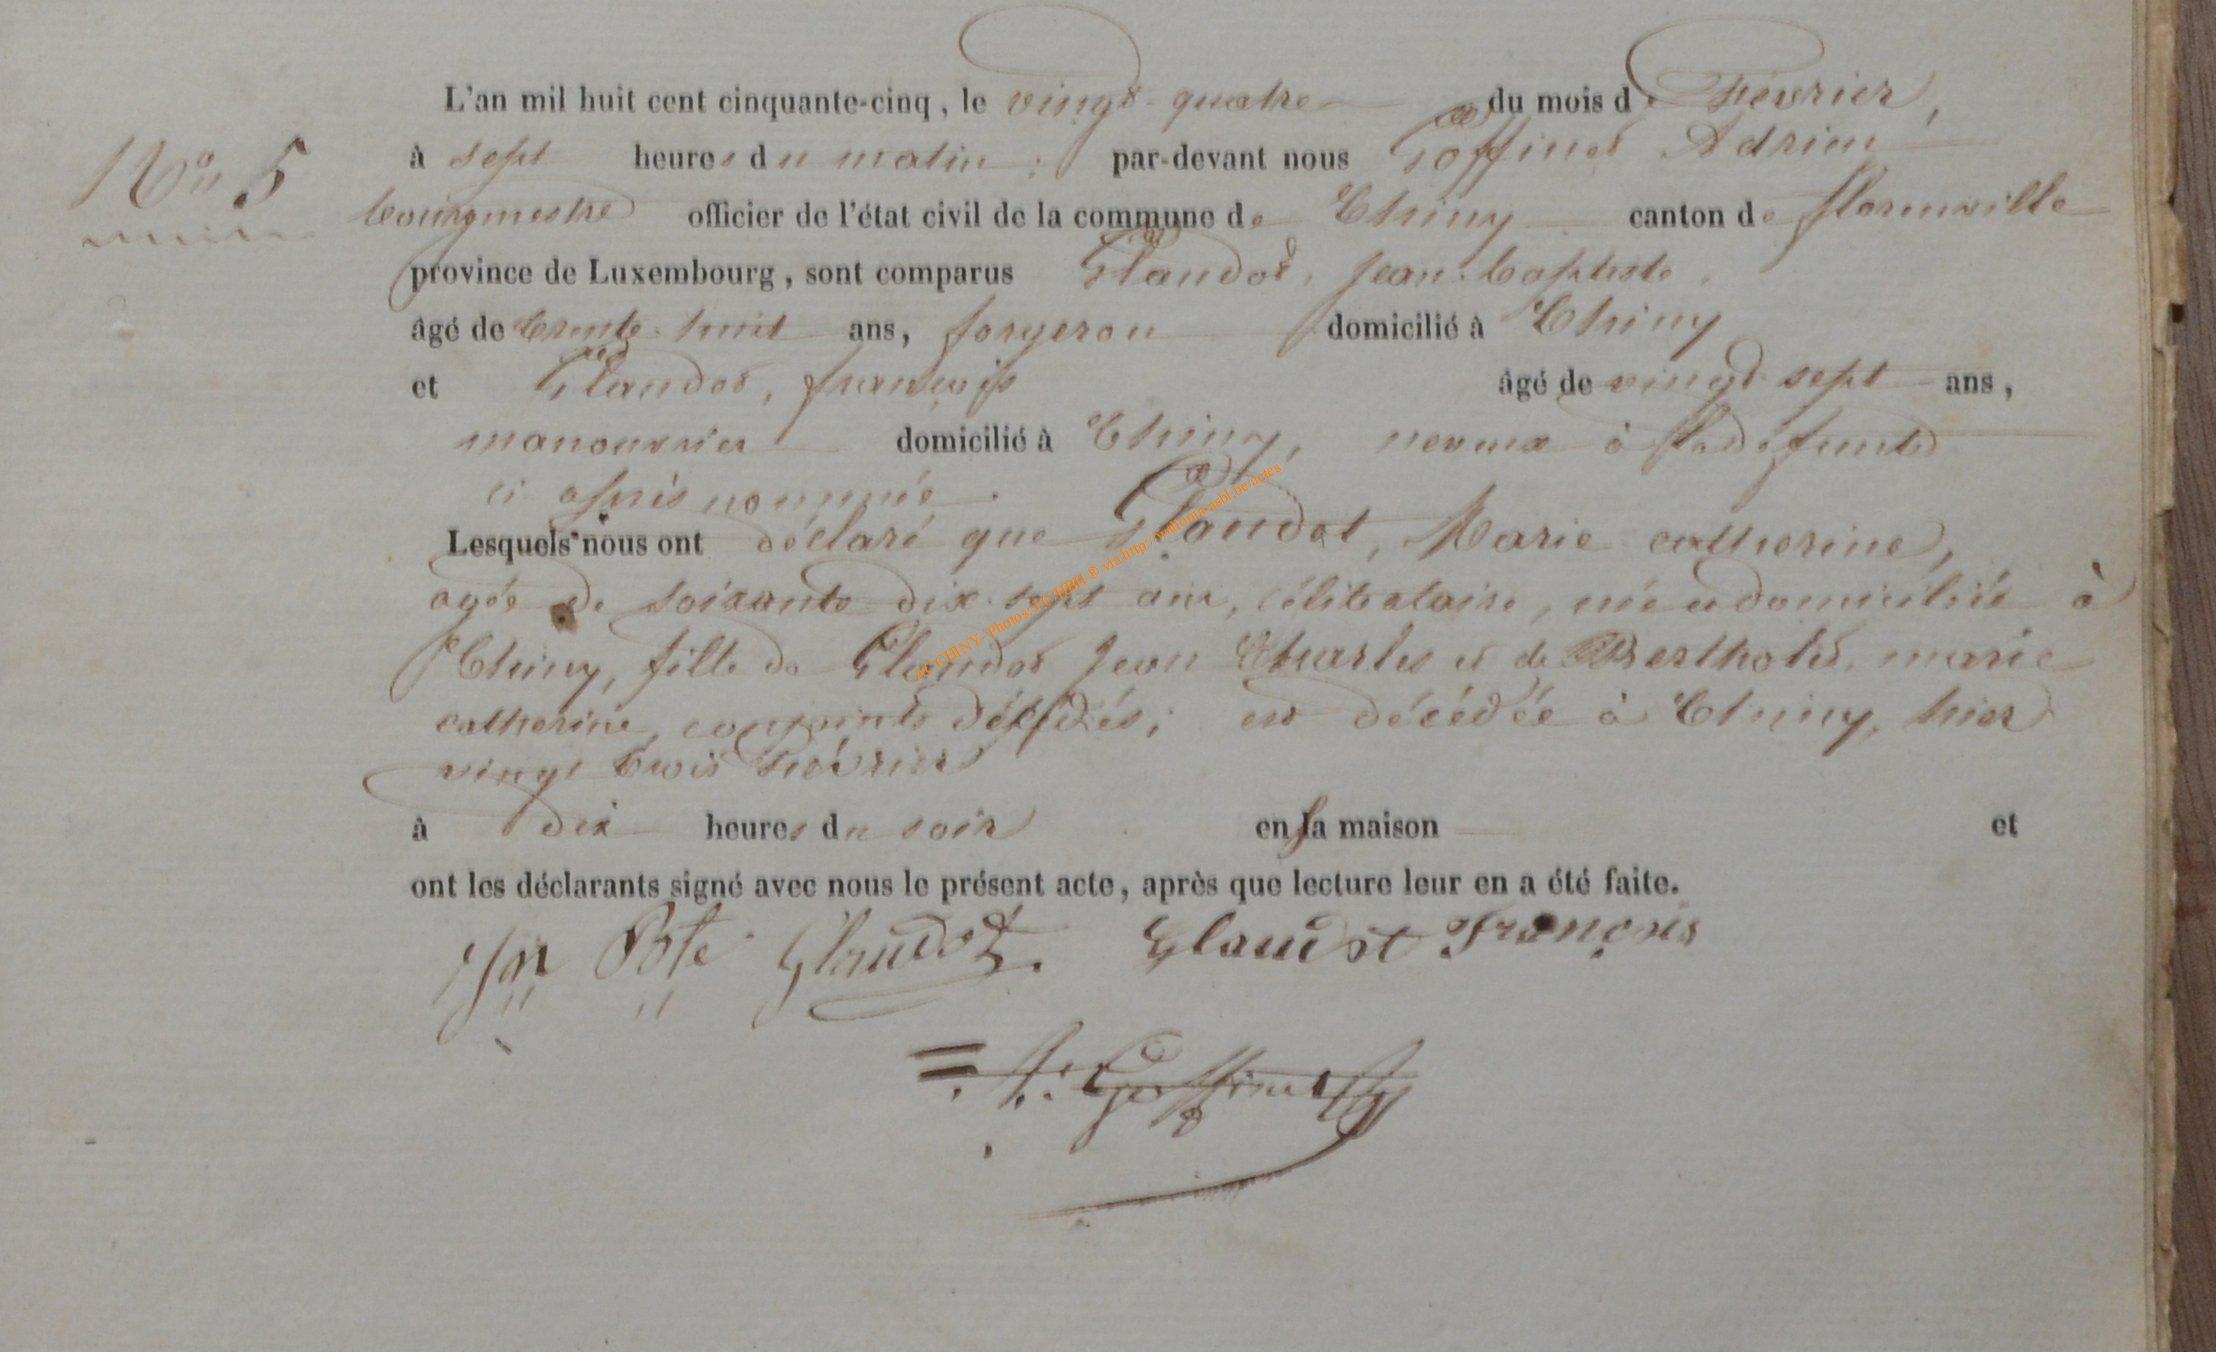 L'an mil huit cent cinquante-cinq, le vingt-quatre du mois de Février,
N° 5
à sept heures du matin, par-devant nous Goffinet Adrien
bourgmestre officier de l'état civil de la commune de Chiny canton de florenville
province de Luxembourg, sont comparus Glaudot, Jean-baptiste,
âgé de trente-huit ans, forgeron domicilié à Chiny
et Glaudot, françois âgé de vingt-sept ans,
manouvrier domicilié à Chiny, neveux à la défunte
ci après nommée.
Lesquels nous ont déclaré que Glaudot, Marie catherine,
agée de soixante-dix-sept ans, célibataire, née et domiciliée à
Chiny, fille de Glaudot Jean Charles et de Bertholet, marie
catherine, conjoints décédés; est décédée à Chiny, hier
vingt trois Février
à dix heures du soir en sa maison et
ont les déclarants signé avec nous le présent acte, après que lecture leur en a été faite.
Jn Bte Glaudot. Glaudot François
A. Goffinet